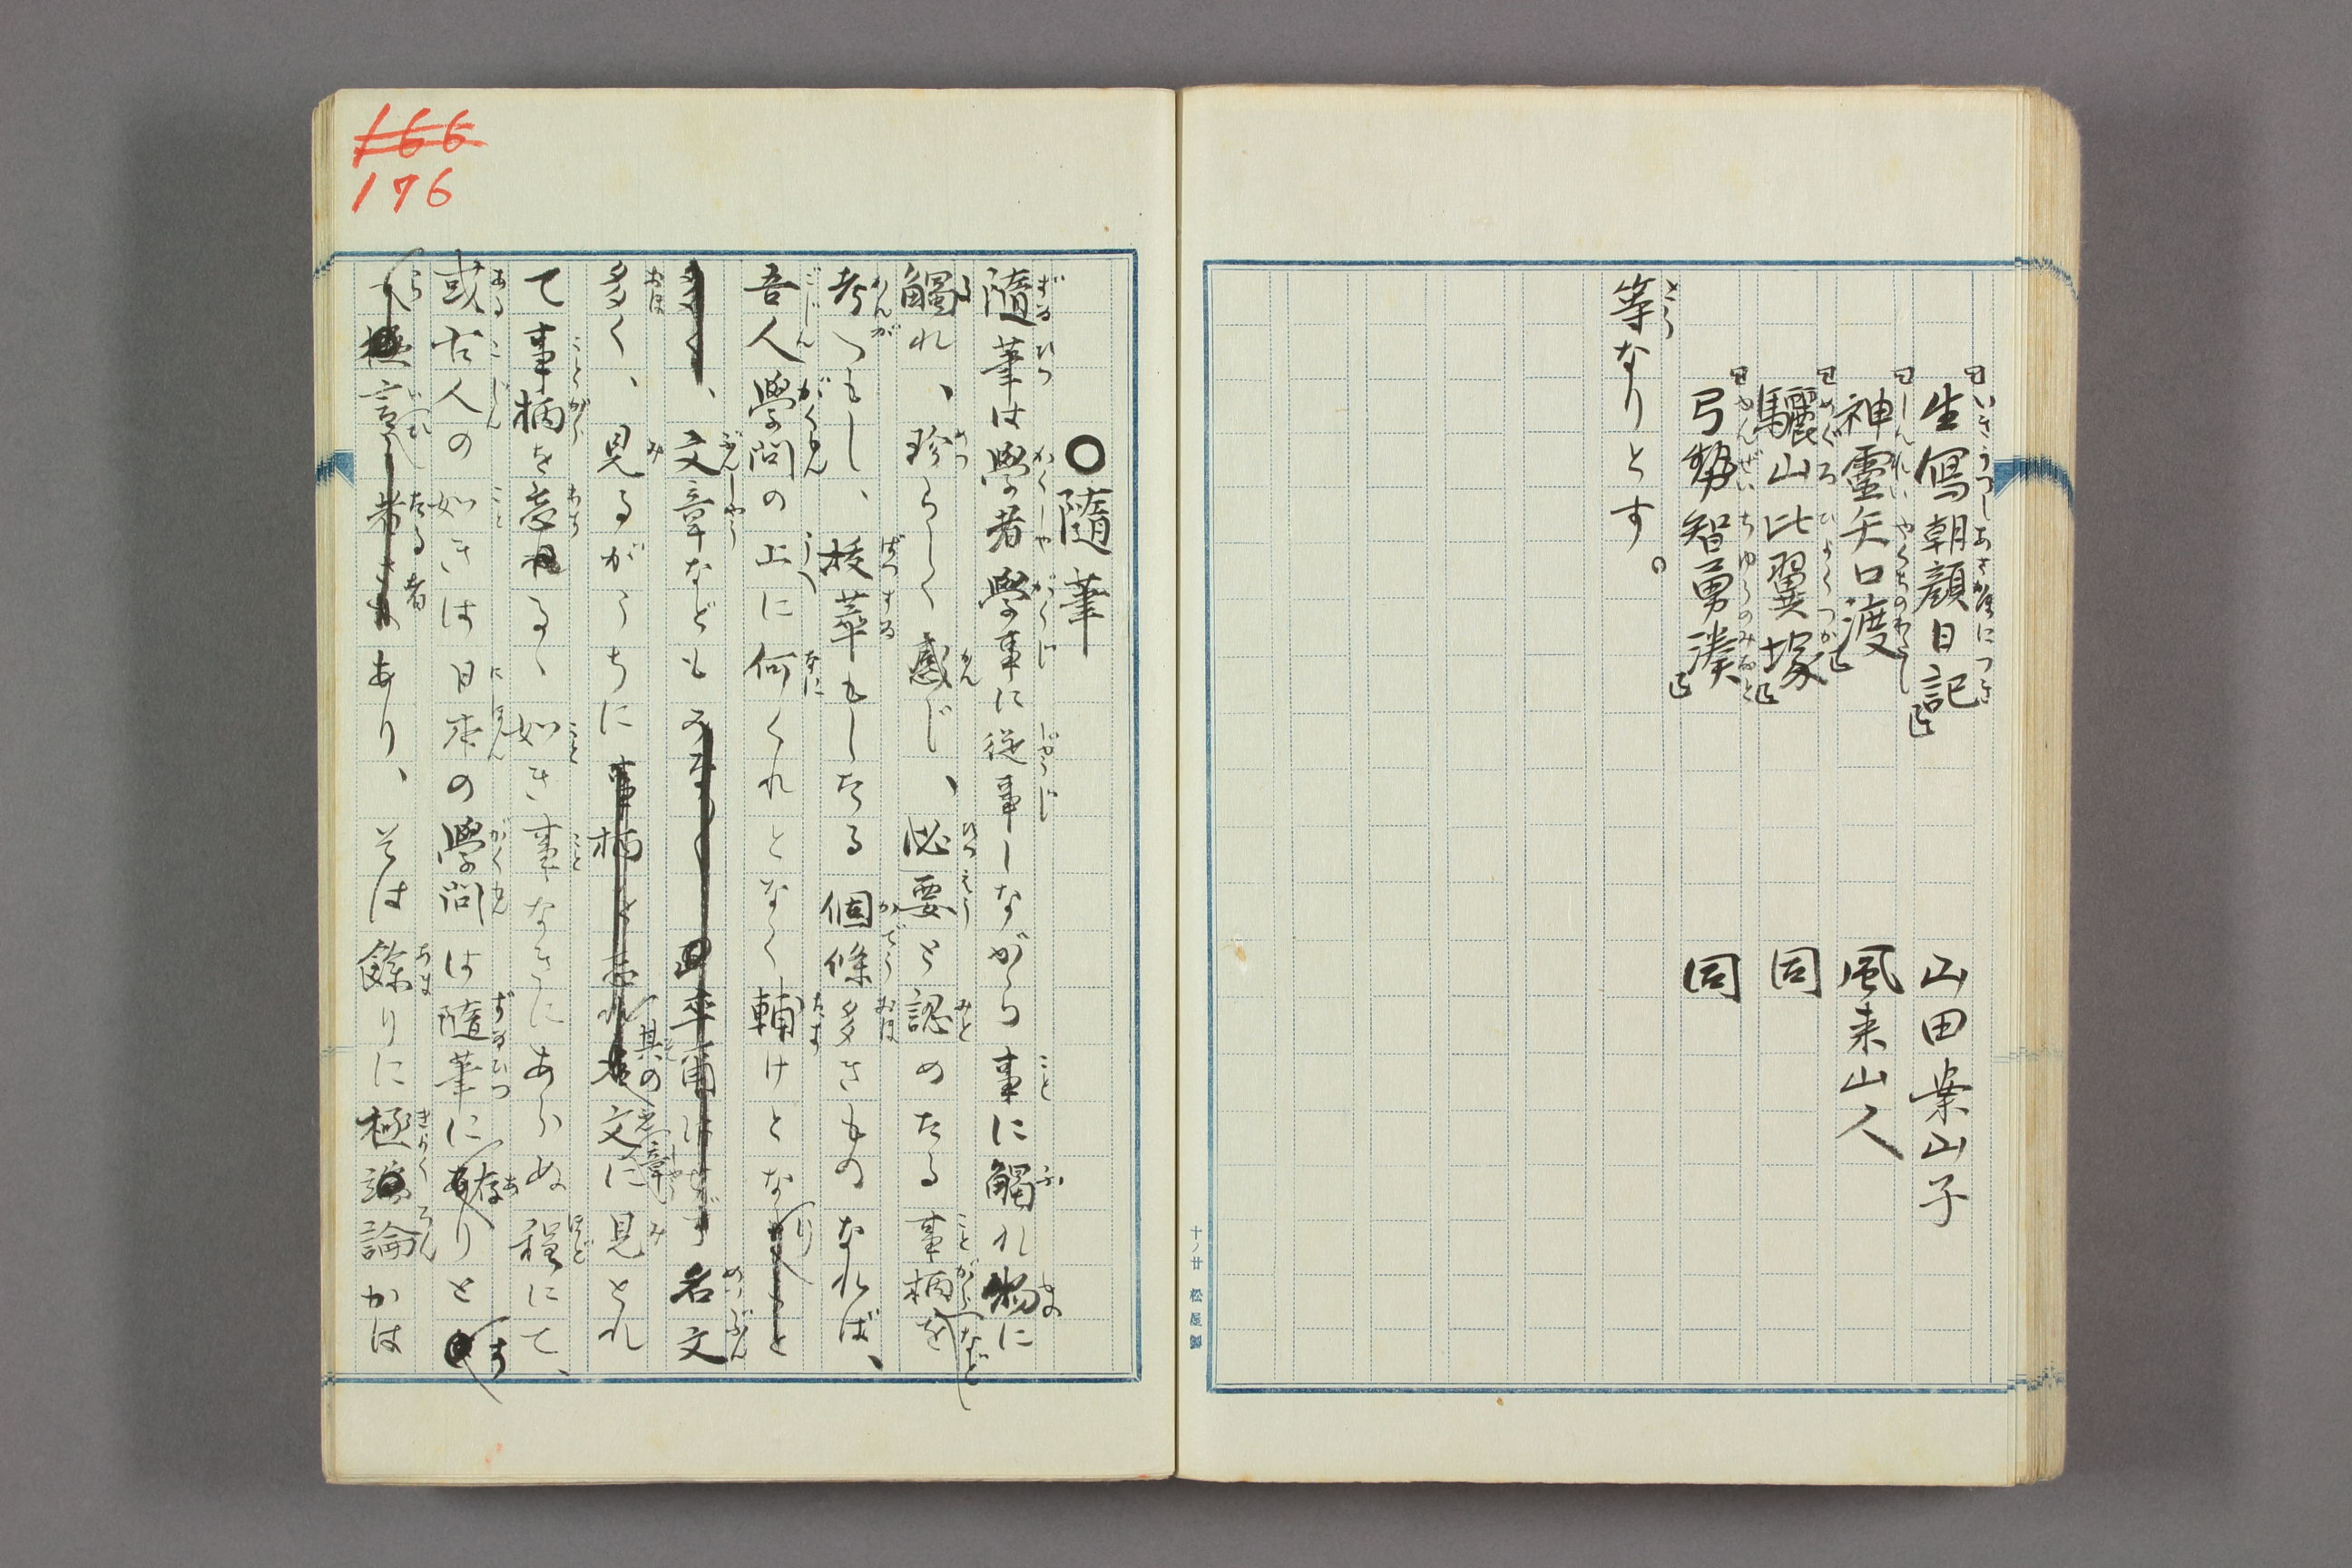 生寫朝顔日記 山田案山子
神靈矢口渡 風来山人
驪山比翼塚 同
弓勢智勇湊 同
等なりとす。
十ノ廿 松屋製
166
176
○隨筆
隨筆は學者學事に従事しながら事に觸れ物に
觸れ、珍らしく感じ、必要と認めたる事柄など
考へもし、抜萃もしたる個條多きものなれば、
吾人學問の上に何くれとなく輔けとなり
文章なども名文
多く、見るがうちに其の文章に見とれ
て事柄を忘るゝ如き事なきにあらぬ程にて、
或古人の如きは日本の學問は隨筆に存りとす
言したる者あり、そは餘りに極論かは